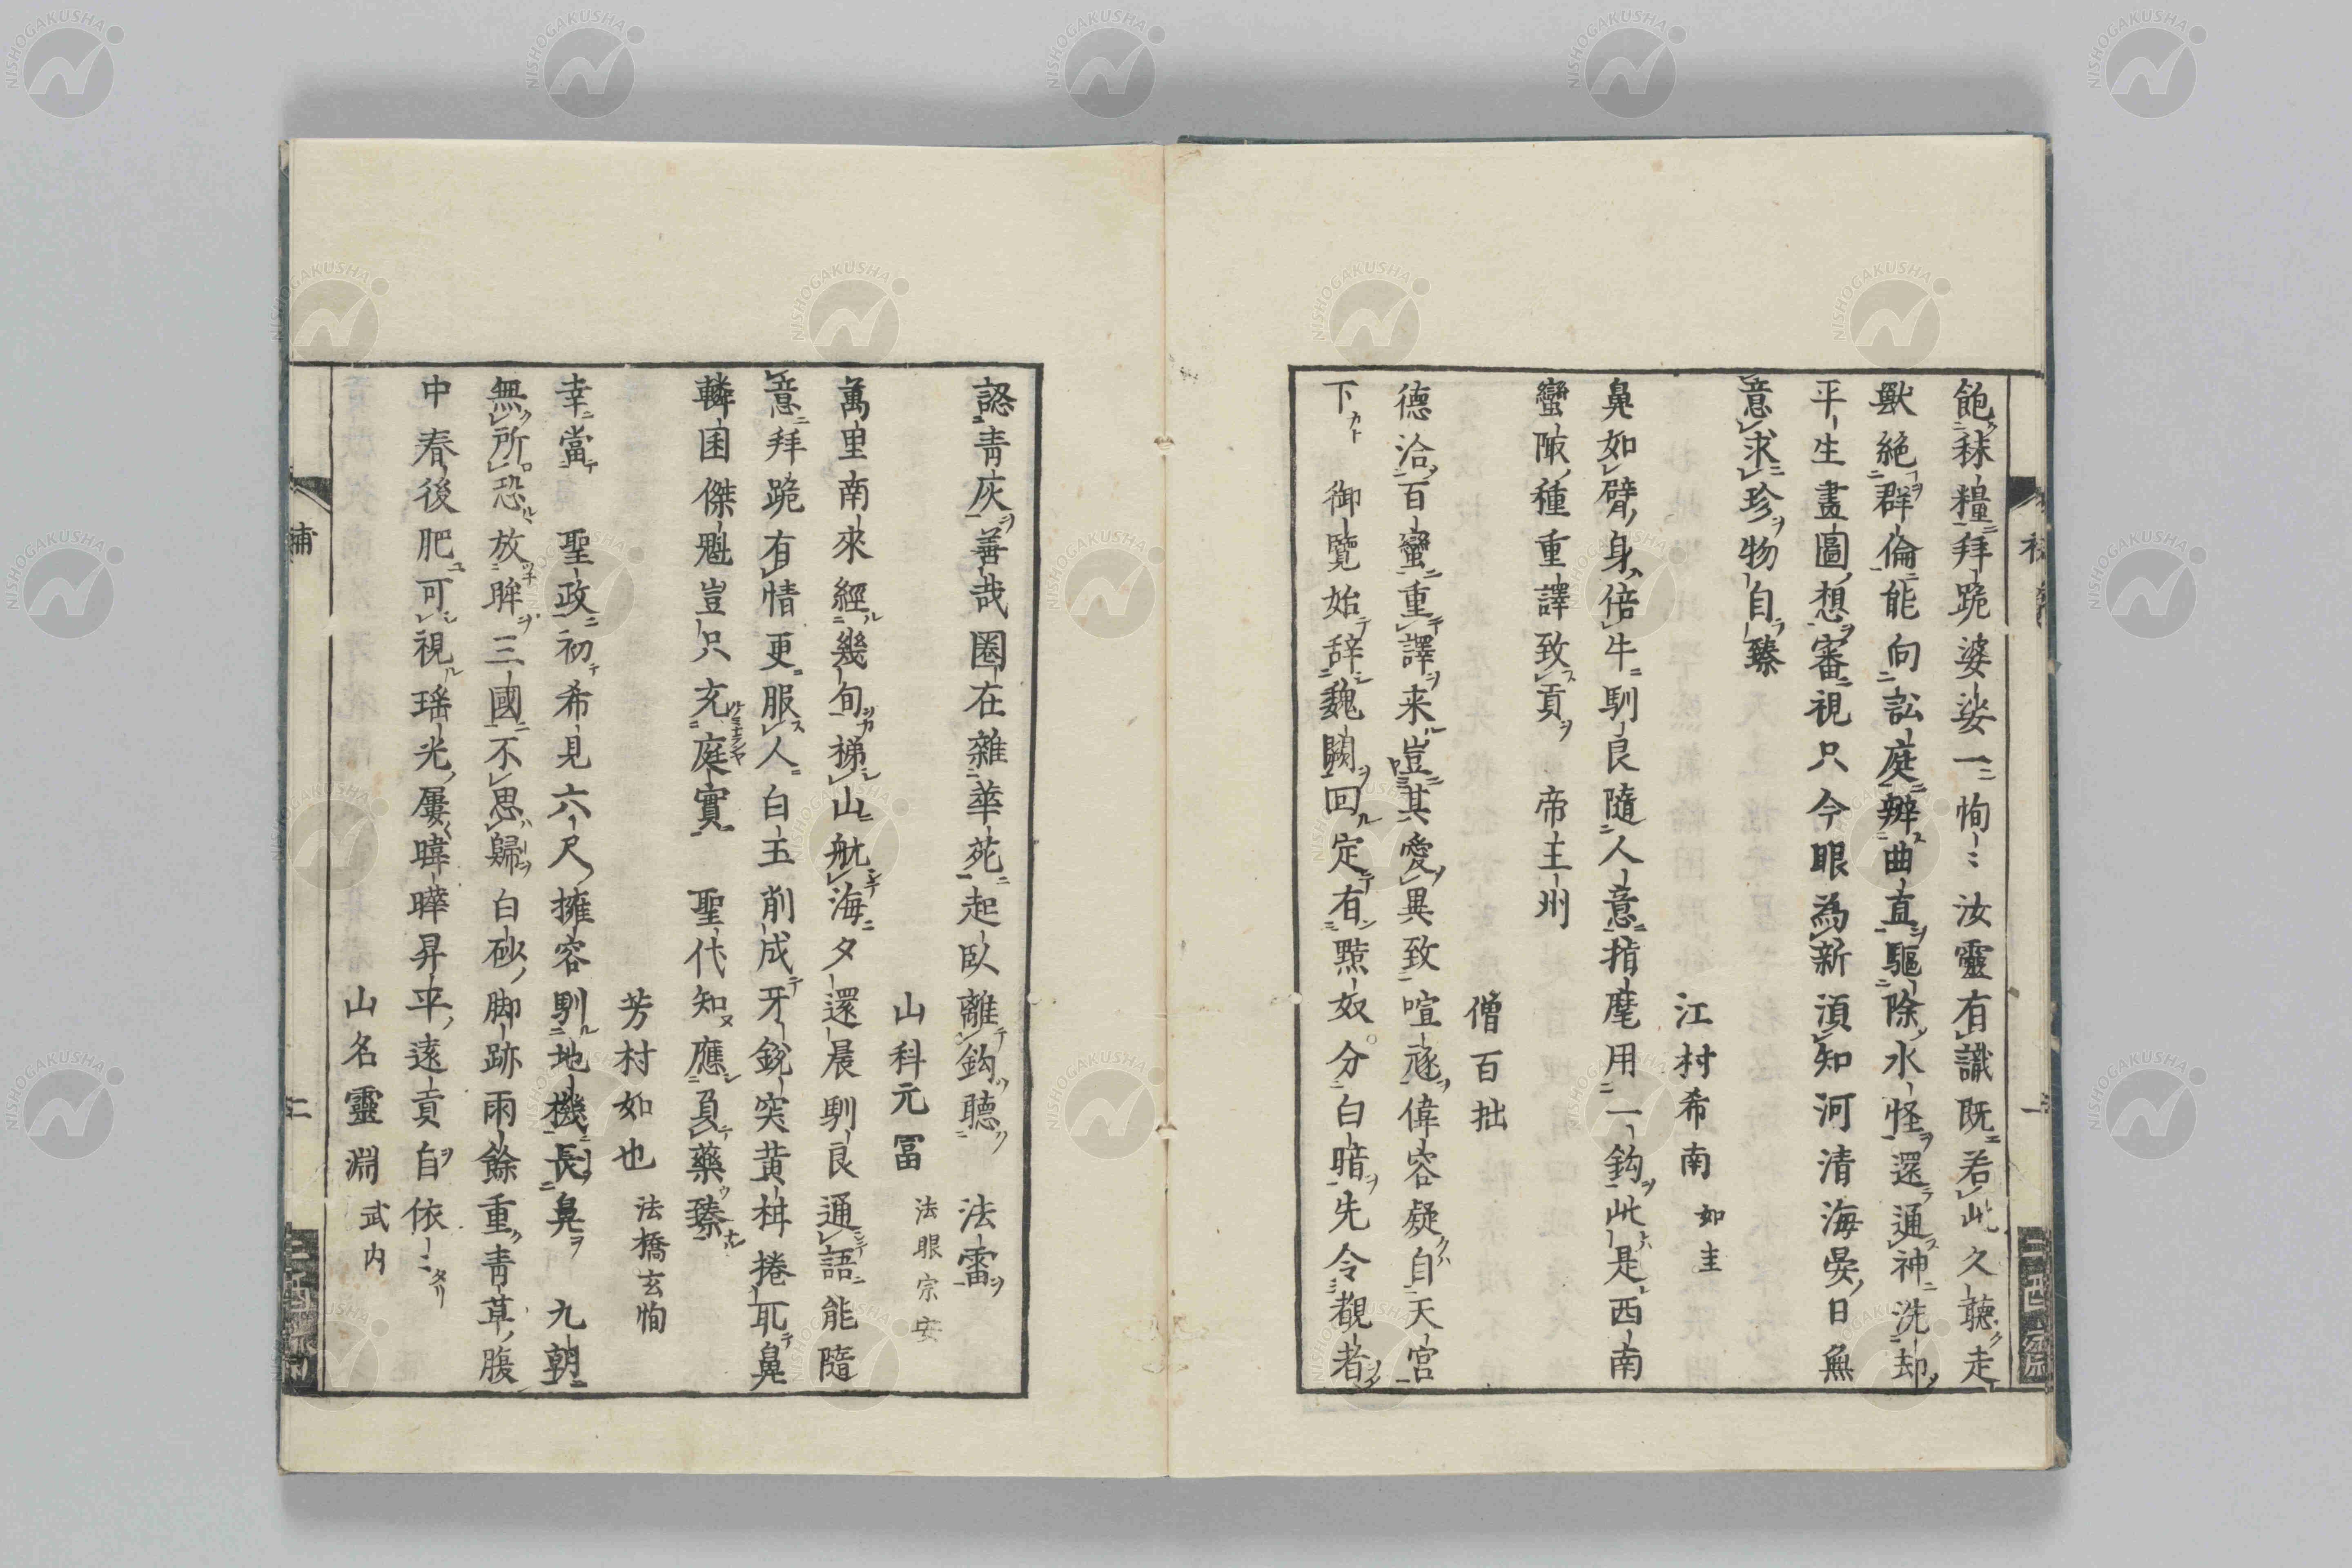 飽秣糧拜跪婆娑一恂〻汝靈有識既若此久聽走
獸絕群倫能向訟庭辨曲直驅除水怪還通神洗却
平生畫圖想審視只今眼為新須知河清海晏日無
意求珍物自臻
江村希南 如圭
鼻如臂身倍牛馴良隨人意指麾用一鈎此是西南
蠻陬種重譯致貢 帝王州
僧百拙
德洽百蠻重譯来豈其愛異致喧豗偉容疑自天宮
下 御覽始辞魏闕回定有黠奴分白暗先令覩者
認青灰善哉圈在雜華苑起臥離鈎聽 法雷
山科元冨 法眼宗安
萬里南來經幾旬梯山航海夕還晨馴良通語能隨
意拜跪有情更服人白玉削成牙銳突黃柑捲取鼻
轔囷傑魁豈只充庭實 聖代知應負藥臻
芳村如也 法橋玄恂
幸當 聖政初希見六尺擁容馴地機長鼻 九朝
無所恐放眸三國不思歸白砂脚跡雨餘重青草腹
中春後肥可視瑶光屢暐曄昇平遠貢自依〻
山名靈淵 武内
補
二
一
NISHOGAKUSHA